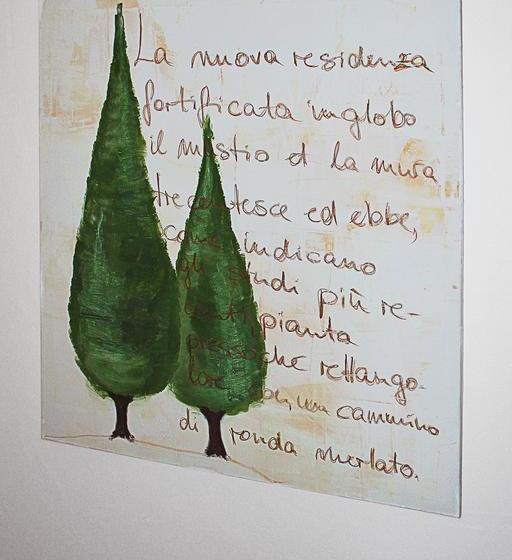 La nuova residenza
fortificata inglobo
il mastio et la mura
trecentesce ed ebbe,
come indicano
gli studi più re-
centi, pianta
pressoche rettango-
lare con, un cammino
di ronda merlato.